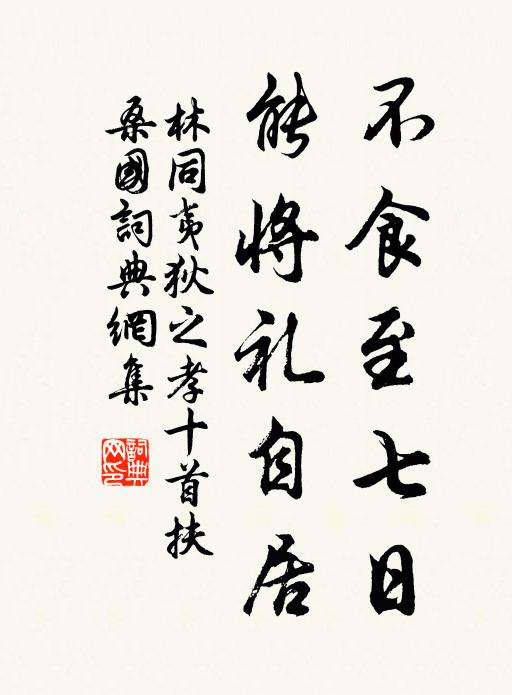 不食至七日
能将礼自居
林同夷狄之孝十首扶
桑國詞典網集
詞典
网印